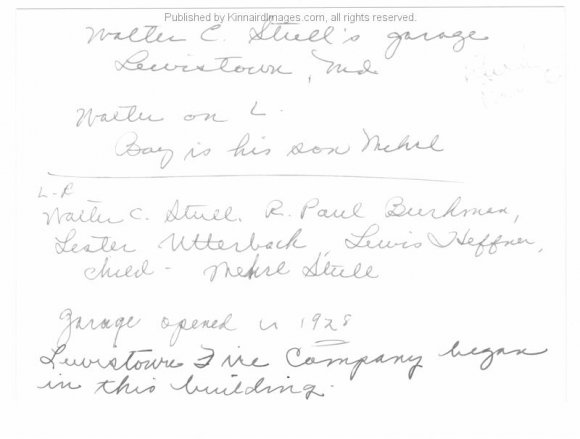 Published by KinnairdImages.com, all rights reserved.
Walter C. Stull's garage
Lewistown, Md.
Walter on L.
Boy is his son Mehrl
L-R
Walter C. Stull, R. Paul Buhrman,
Lester Utterback, Lewis Heffner,
child - Mehrl Stull
Garage opened in 1928
Lewistown Fire Company began
in this building.